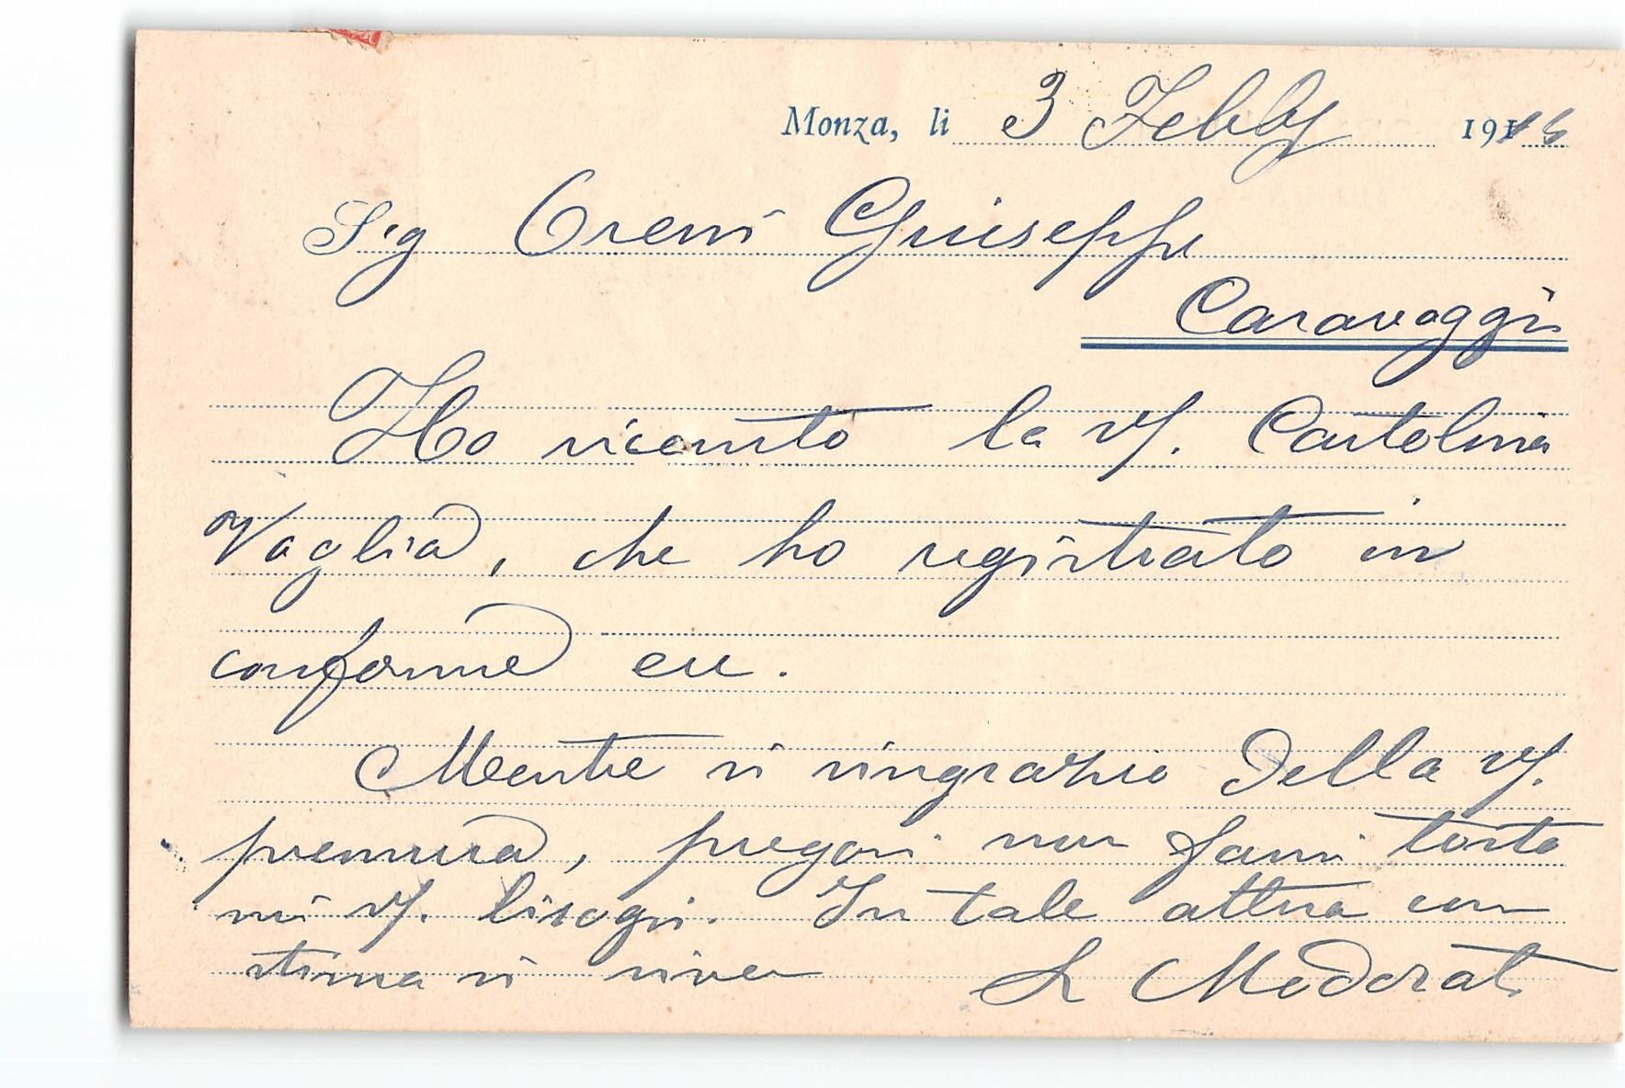 Monza, li 3 Febb 191
Sig Cremi Giuseppe
Caravaggio
Ho ricevuto la V/. Cartolina
Vaglia, che ho registrato in
conforme
Mentre vi ringrazio della V/.
premura, pregovi non farvi torto
nei V/. bisogni. In tale attesa con
stima vi riverisco L Moderati